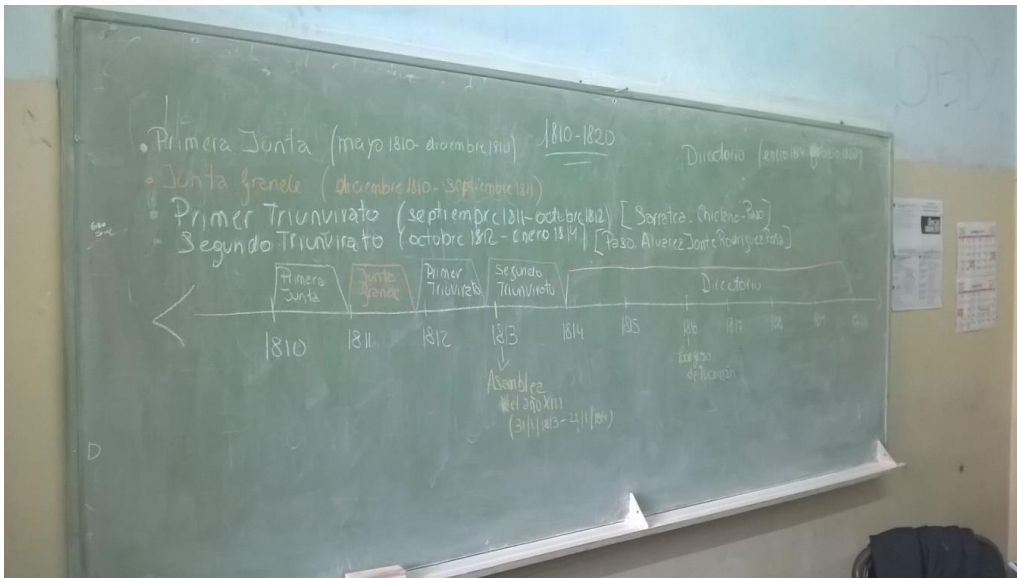 1810-1820
• Primera Junta (mayo 1810- diciembre 1810)
Directorio (enero 1814-
• Junta Grande (diciembre 1810- septiembre 1811)
• Primer Triunvirato (septiembre 1811- octubre 1812) [Sarratea-Chiclana-Paso]
- Segundo Triunvirato (octubre 1812 - enero 1814) [Paso. Alvarez Jonte Rodriguez Peña]
Primera
Junta
Junta
Grande
Primer
Segundo
Triunvirato
Directorio
1810
1811
1812
1813
1814
1815
1816
1817
Asamblea
del año XIII
(31/1/1813-
de Tucumán